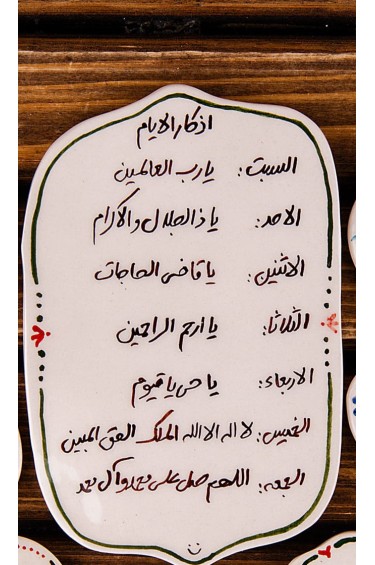 اذكار الايام
السبت: يا رب العالمين
الاحد: يا ذالجلال و الاكرام
الاثنين: يا قاضى الحاجات
الثلاثا: يا ارحم الراحمين
الاربعاء: يا حى يا قيوم
الخميس: لا اله الا الله الملك الحق المبين
الجمعه: اللهم صل على محمد وآل محمد